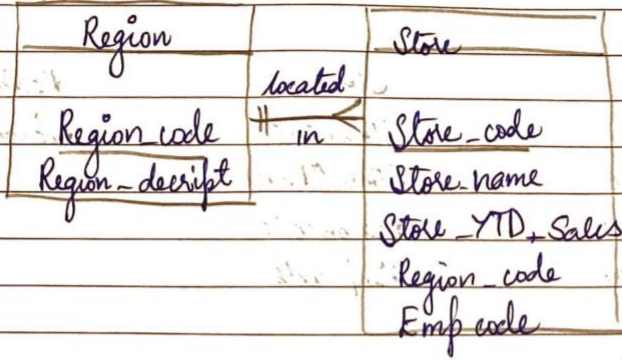 Region
Region_code
Region_decript
located
in
Store
Store_code
Store_name
Store_YTD_Sales
Region_code
Emp code